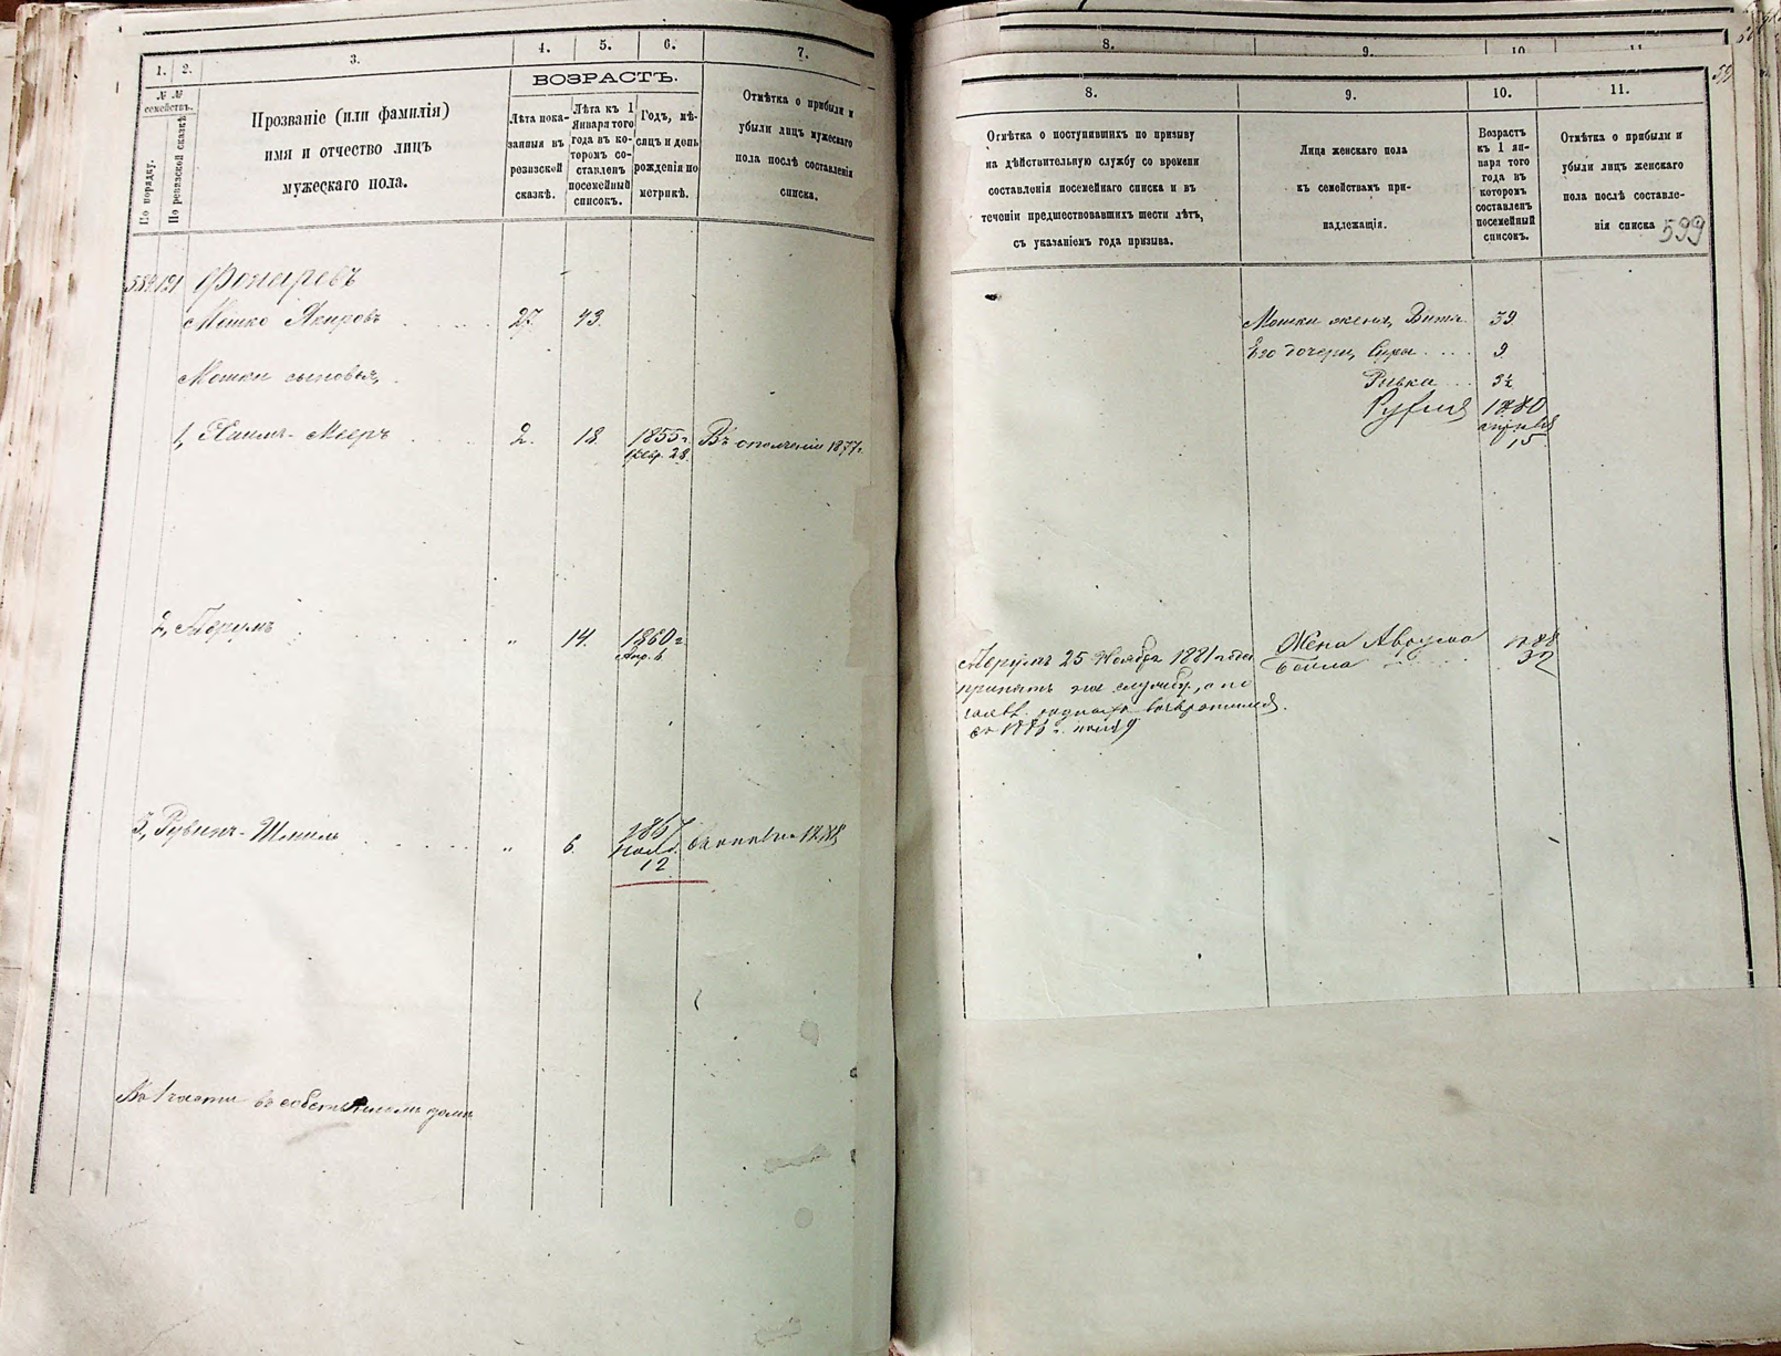 1. 2. 3. 4. 5. 6. 7.
№ №
семействъ.
По порядку.
По ревизской сказкѣ
Прозваніе (или фамилія)
имя и отчество лицъ
мужескаго пола.
ВОЗРАСТЪ.
Лѣта пока-
занныя въ
ревизской
сказкѣ.
Лѣта къ 1
Января того
года въ ко-
торомъ со-
ставленъ
посемейный
списокъ.
Годъ, мѣ-
сяцъ и день
рожденія по
метрикѣ.
Отмѣтка о прибыли и
убыли лицъ мужескаго
пола послѣ составленія
списка.
121 Фонаревъ
Мошко Якировъ 27. 43.
Мошки сыновья,
1, Хаимъ-Мееръ 2. 18. 1855 г. Въ ополченіи 1877 г.
Февр. 28.
2, " 14. 1860 г.
Апр. 6.
3, Рувинъ-Шмиль " 6. 1867
12
Въ 1 части въ собственномъ домѣ
8. 9. 10 11
8. 9. 10. 11.
Отмѣтка о поступившихъ по призыву
на дѣйствительную службу со времени
составленія посемейнаго списка и въ
теченіи предшествовавшихъ шести лѣтъ,
съ указаніемъ года призыва.
Лица женскаго пола
къ семействамъ при-
надлежащія.
Возрастъ
къ 1 ян-
варя того
года въ
которомъ
составленъ
посемейный
списокъ.
Отмѣтка о прибыли и
убыли лицъ женскаго
пола послѣ составле-
нія списка
599
Мошки жена, 39.
Его дочери, Сура 9
Ривка 3½
1880
апрѣля
15
25 Ноября 1881 года
принятъ на службу, а по
возвратился
Жена Аврума 1888
Бейла 32